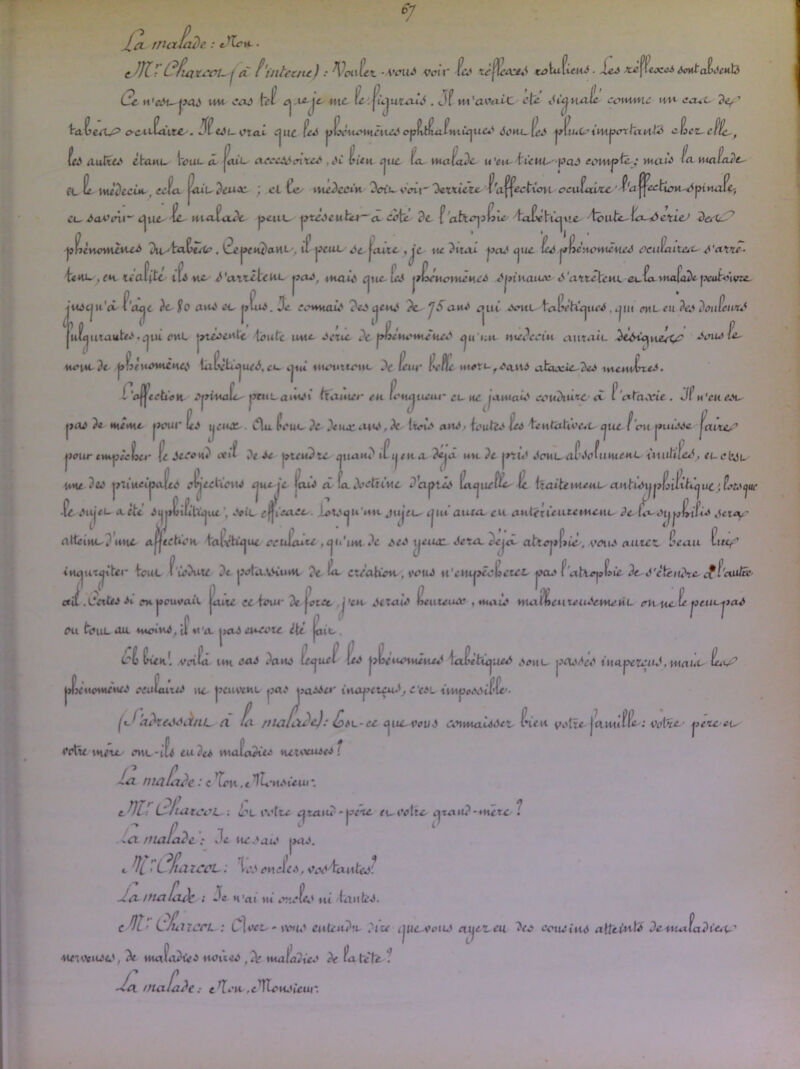 67
La malade : Non.
Mr Charcot (à l'interne) : Voulez-vous voir les réflexes rotuliens. Les réflexes sont absents
Ce n'est pas un cas tel que je me le figurais. Il m'avait été signalé comme un cas de
tabes oculaire. Il est vrai que les phénomènes ophtalmiques sont les plus importants chez elle,
les autres étant tout à fait accessoires, si bien que la malade n'en tient pas compte ; mais la malade
et le médecin, cela fait deux ; et le médecin doit voir derrière l'affection oculaire l'affection spinale,
et savoir que le malade peut présenter à côté de l'atrophie tabétique toute la série des
phénomènes du tabes. Cependant, il peut se faire, je ne dirai pas que les phénomènes oculaires s'arrê-
tent, en réalité ils ne s'arrêtent pas, mais que les phénomènes spinaux s'arrêtent et la malade peut vivre
jusqu'à l'âge de 80 ans et plus. Je connais des gens de 75 ans qui sont tabétiques, qui ont eu des douleurs
fulgurantes, qui ont présenté toute une série de phénomènes qu'un médecin aurait désignés sous le
nom de phénomènes tabétiques, et qui mourront de leur belle mort, sans ataxie des membres.
L'affection spinale peut ainsi traîner en longueur et ne jamais conduire à l'ataxie. Il n'en est
pas de même pour les yeux. Au bout de deux ans, de trois ans, toutes les tentatives que l'on puisse faire
pour empêcher le second œil de se prendre quand il y en a déjà un de pris sont absolument inutiles, et c'est
une des principales objections que je fais à la doctrine d'après laquelle le traitement antisyphilitique ; lorsque
le sujet a été syphilitique, soit efficace. Lorsqu'un sujet qui aura eu antérieurement de la syphilis sera
atteint d'une affection tabétique oculaire, qu'un de ses yeux sera déjà atrophié, vous aurez beau lui
ingurgiter tout l'iodure de potassium de la création, vous n'empêcherez pas l'atrophie de s'étendre à l'autre
œil. Certes si on pouvait faire ce tour de force, j'en serais heureux, mais malheureusement on ne le peut pas
ou tout au moins, il n'a pas encore été fait.
Eh bien ! voilà un cas dans lequel les phénomènes tabétiques sont passés inaperçus, mais les
phénomènes oculaires ne peuvent pas passer inaperçus, c'est impossible.
(S'adressant à la malade) : Est-ce que vous connaissez bien votre famille : votre père et
votre mère ont-ils eu des maladies nerveuses ?
La malade : Non, Monsieur.
Mr Charcot : Et votre grand-père et votre grand-mère ?
La malade : Je ne sais pas.
Mr Charcot : Vos oncles, vos tantes ?
La malade : Je n'ai ni oncles ni tantes.
Mr Charcot : Avez-vous entendu dire que vous ayez eu des cousins atteints de maladies
nerveuses, de maladies noires, de maladies de la tête ?
La malade : Non, Monsieur.